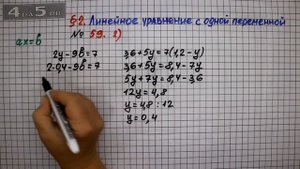 4A5.ru
§2. Линейное уравнение с одной переменной
ax=b
№ 59. 2)
2y-9b=7
2·2y-9b=7
3,6+5y=7(1,2-y)
3,6+5y=8,4-7y
5y+7y=8,4-3,6
12y=4,8
y=4,8:12
y=0,4